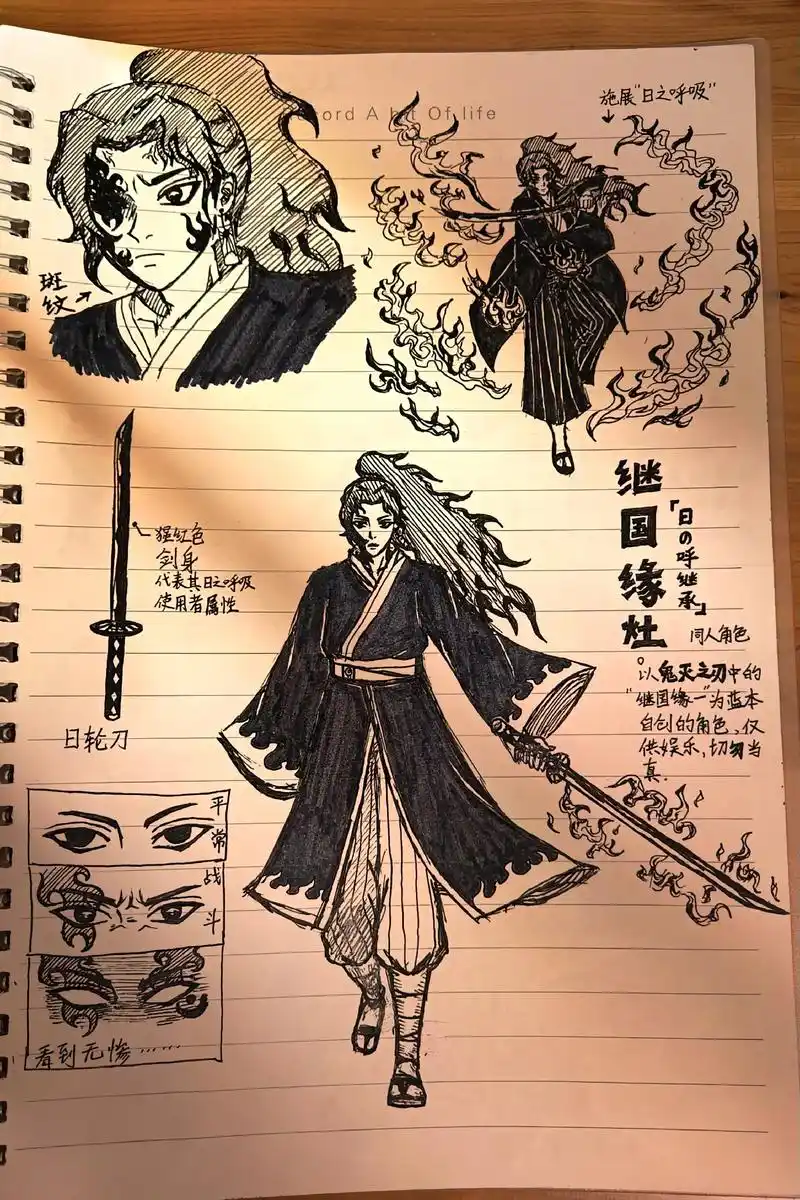 ord A Bit Of life
施展"日之呼吸"
斑
纹
猩红色
剑身
代表其日之呼吸
使用者属性
日轮刀
继国缘灶
「日の呼継承」
同人角色
以鬼灭之刃中的
"继国缘一"为蓝本
自创的角色,仅
供娱乐,切勿当
真.
平常
战斗
看到无惨……